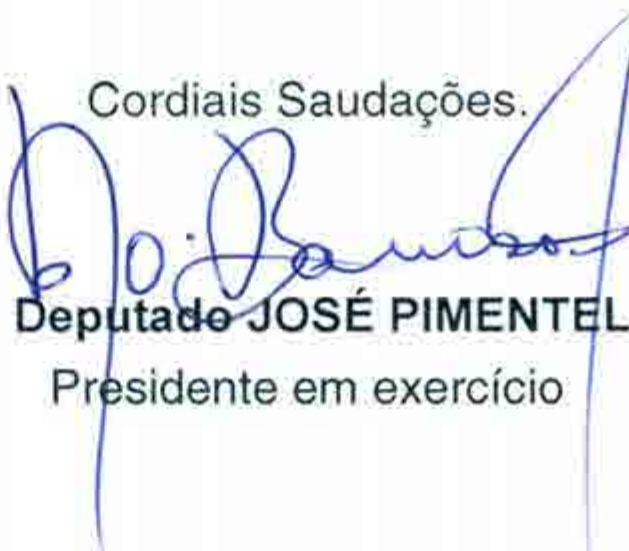 Cordiais Saudações.
Deputado JOSÉ PIMENTEL
Presidente em exercício